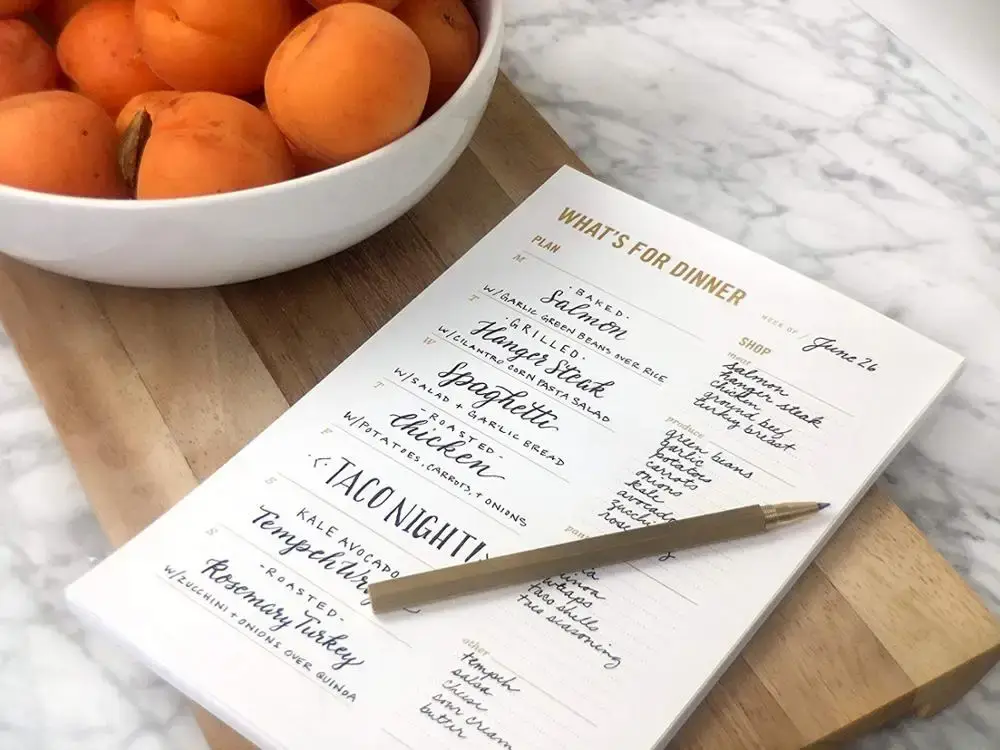 WHAT'S FOR DINNER
WEEK OF / June 26
PLAN
M
·BAKED·
Salmon
W/GARLIC GREEN BEANS OVER RICE
T
·GRILLED·
Hanger Steak
W/CILANTRO CORN PASTA SALAD
W
Spaghetti
W/SALAD + GARLIC BREAD
T
-ROASTED-
Chicken
W/POTATOES, CARROTS, + ONIONS
F
TACO NIGHT!
S
KALE AVOCADO
Tempeh
S
-ROASTED-
Rosemary Turkey
W/ZUCCHINI + ONIONS OVER QUINOA
SHOP
meat
salmon
hanger steak
chicken
ground beef
turkey breast
produce
green beans
garlic
potatoes
carrots
onions
kale
avocado
wraps
taco shells
taco seasoning
other
tempeh
salsa
cheese
sour cream
butter